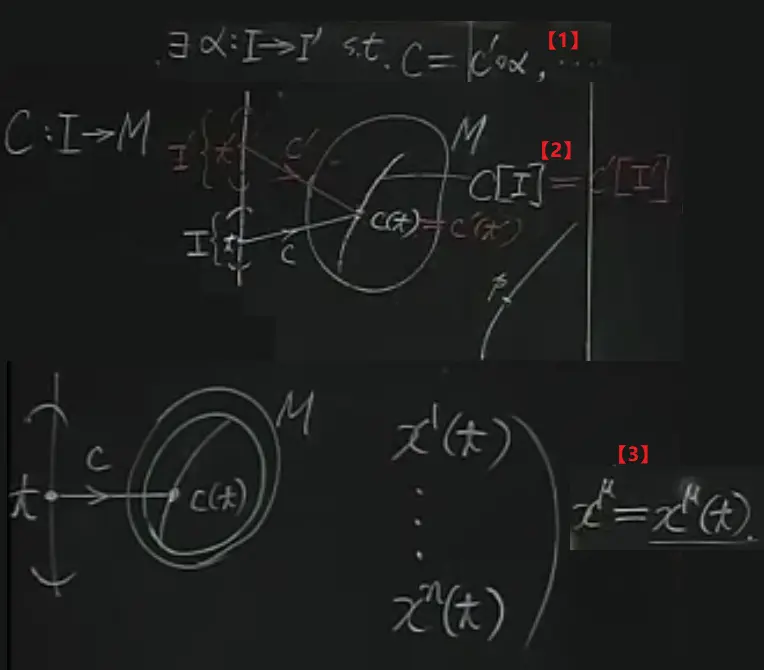 ∃ α: I → I' s.t. C = C'∘α, ... 【1】
C: I → M
I' { t' C' M 【2】
C[I] = C'[I']
I { t C C(t) = C'(t')
p
C M
t C(t)
x¹(t)
⋮
xⁿ(t)
【3】
x^μ = x^μ(t).